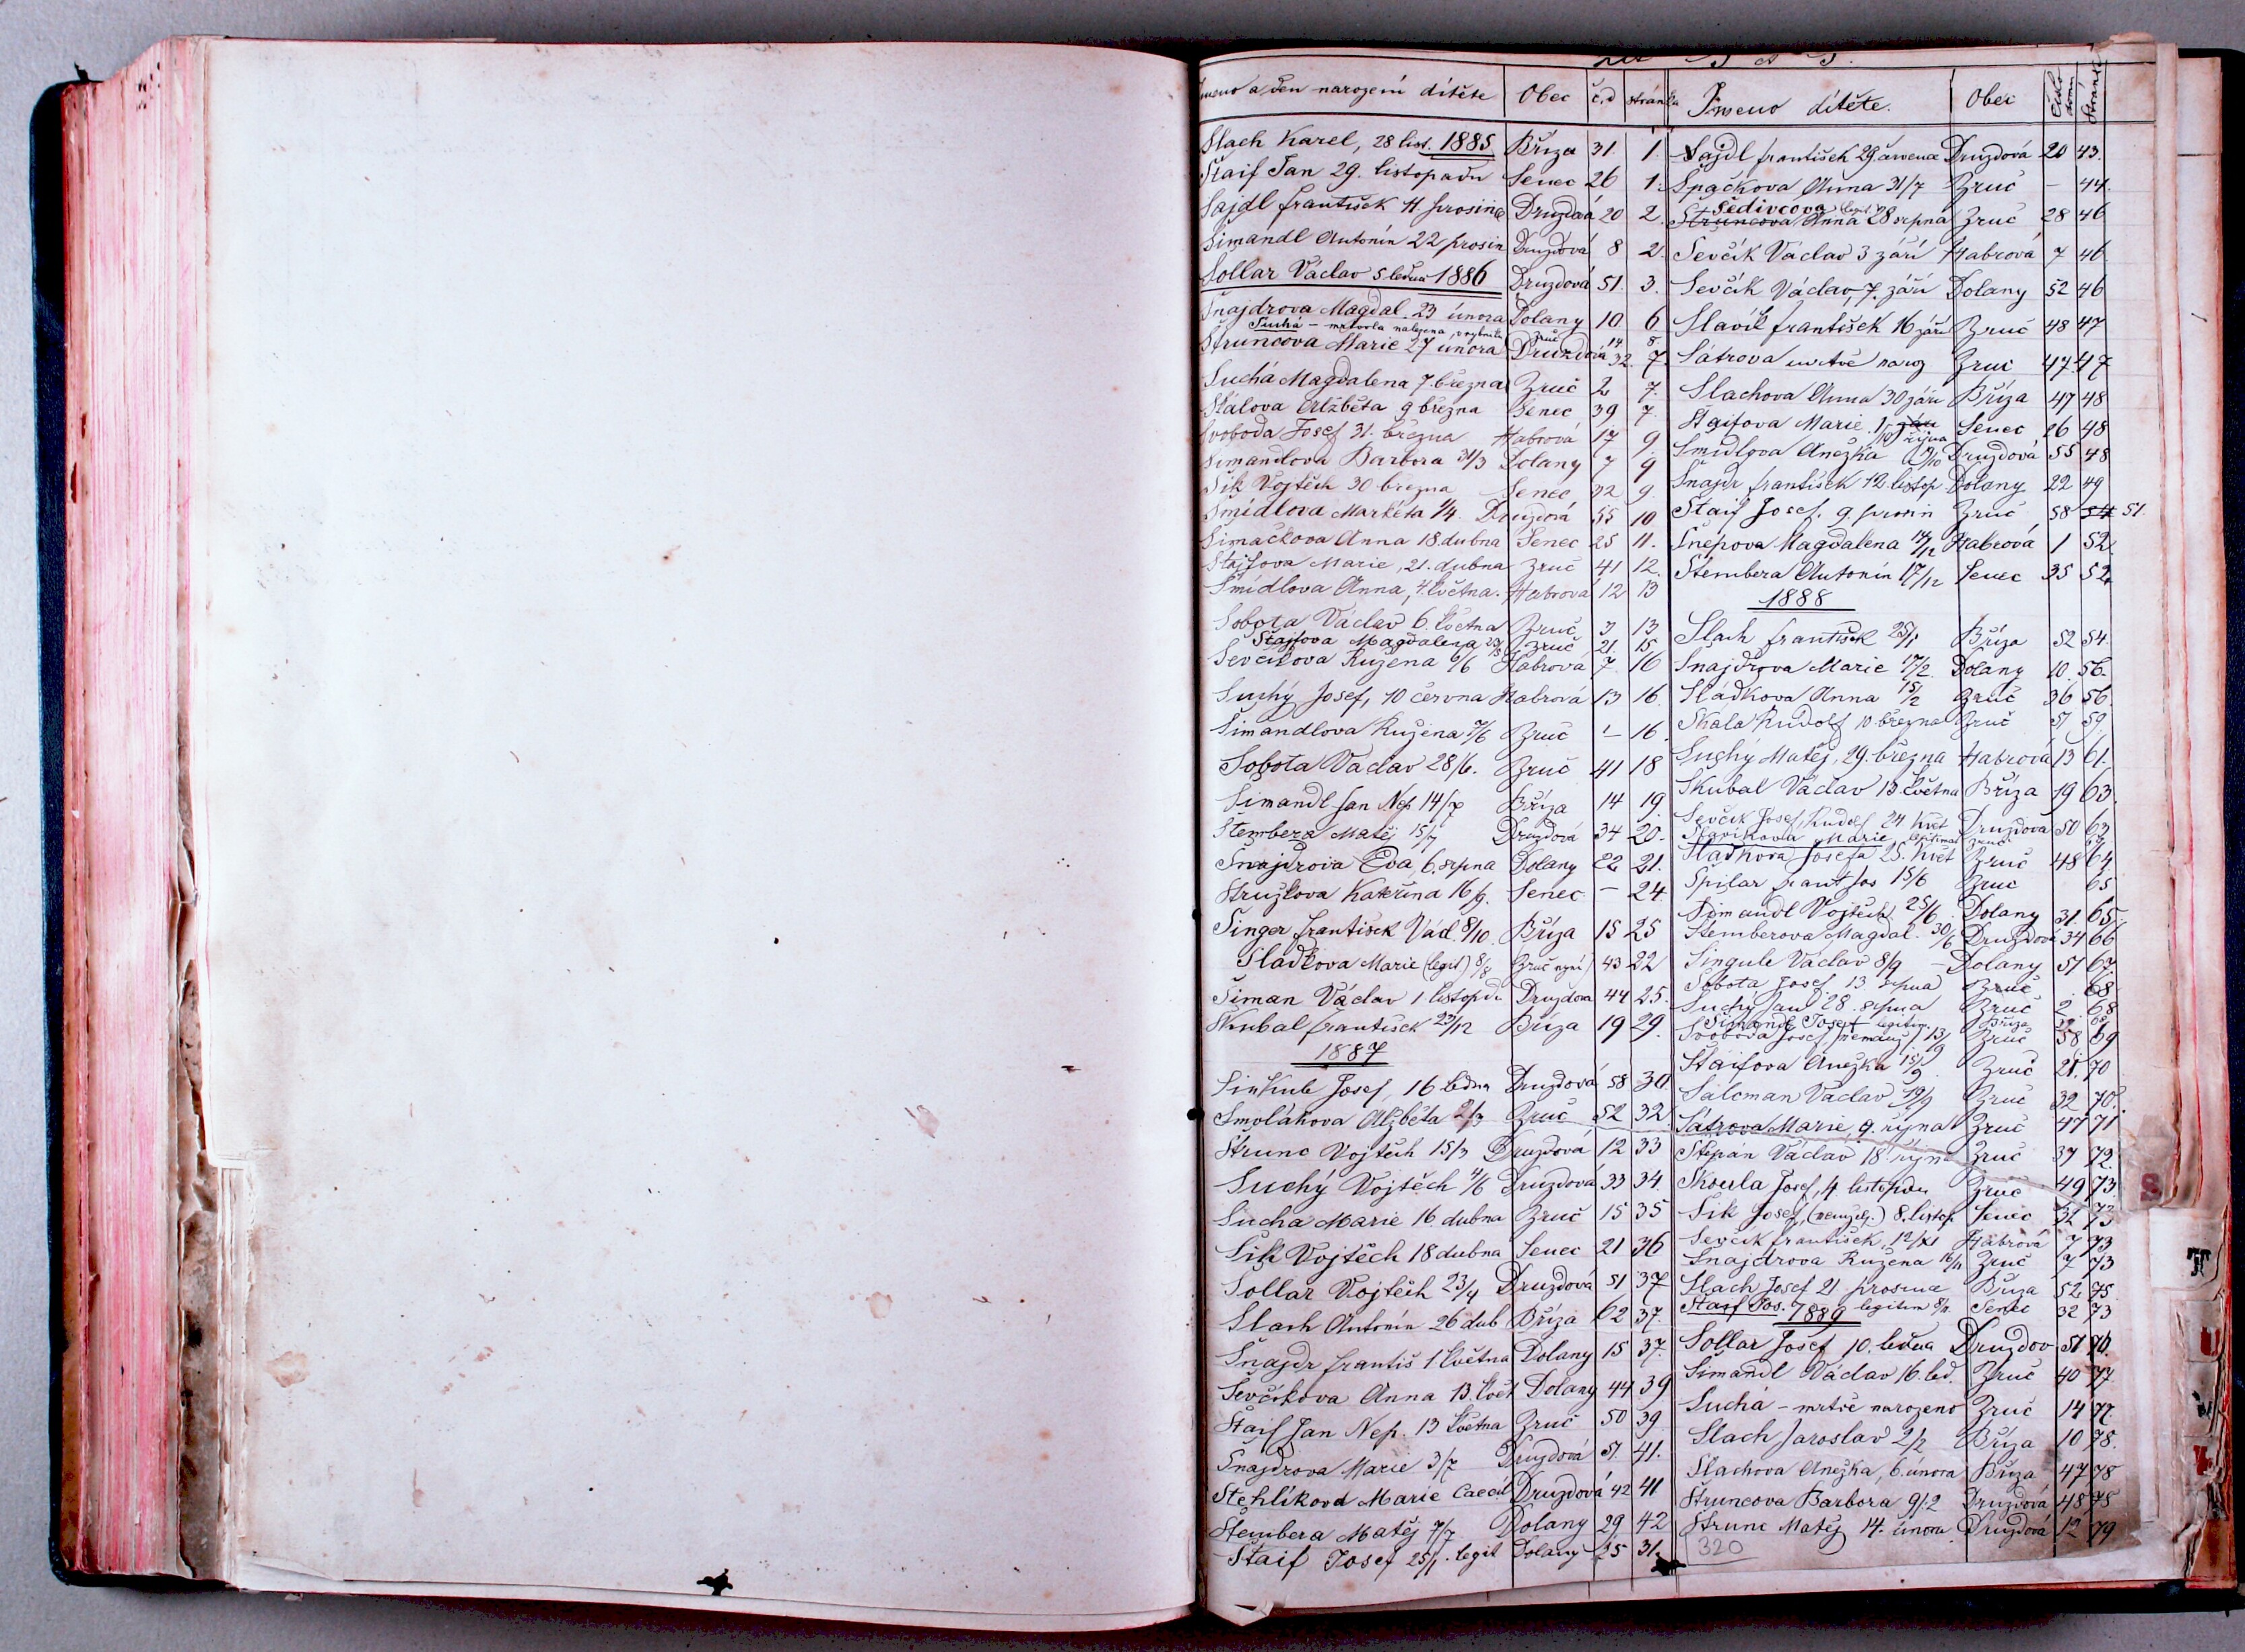 Jmeno a den narození dítěte Obec č.d stránka
Slach Karel, 28 list. 1885 Bříza 31. 1.
Štaif Jan 29. listopadu Senec 26 1.
Šajdl František 11 prosince Druzdová 20 2.
Šimandl Antonín 22 prosin Druzdová 8 2.
Sollar Václav 5 ledna 1886 Druzdová 51. 3.
Šnajdrova Magdal. 23 února Dolany 10. 6.
Suchá - mrtvola nalezena v rybníku Zruč 14 8.
Štruncova Marie 27 února Druzdová 32. 7.
Suchá Magdalena 7. března Zruč 2 7.
Stálova Alžběta 9 března Senec 39 7.
Svoboda Josef 31. března Habrová 17 9.
Šimandlova Barbora 31/3 Dolany 7 9
Šik Vojtěch 30 března Senec 32 9.
Šmídlova Markéta 1/4 Druzdová 55 10.
Šimáčkova Anna 18. dubna Senec 25 11.
Štaifova Marie, 21. dubna Zruč 41 12.
Šmídlova Anna, 4. května. Habrová 12 13
Sobota Václav 6. května Zruč 3 13.
Štajfova Magdalena Zruč 21. 15.
Ševčíkova Růžena 6/6 Habrová 7 16
Suchý Josef, 10 června Habrová 13 16.
Šimandlova Růžena 7/6 Zruč 1 16.
Sobota Václav 28/6. Zruč 41 18
Šimandl Jan Nep. 14/7 Bříza 14 19.
Štembera Matěj 15/7 Druzdová 34 20.
Šnajdrova Eva, 6. srpna Dolany 22 21.
Stružkova Kateřina 16/9. Senec - 24
Singer František Vác. 8/10. Bříza 15 25
Sladkova Marie (legit) 8/8 Zruč nyní 43 22
Šiman Václav 1 listopadu Druzdova 44 25.
Skubal František 23/12 Bříza 19 29.
1887
Sinkule Josef, 16 ledna Druzdová 58 30.
Smolákova Alžběta 2/3 Zruč 52 32.
Štrunc Vojtěch 15/3 Druzdová 12 33
Suchý Vojtěch 4/6 Druzdová 33 34.
Suchá Marie 16. dubna Zruč 15 35
Šik Vojtěch 18 dubna Senec 21 36
Sollar Vojtěch 23/4 Druzdová 51 37
Slach Antonín 26 dub Bříza 62 37.
Šnajdr Františ 1 května Dolany 15 37.
Ševčíkova Anna 13. květ Dolany 44 39
Štaif Jan Nep. 13 května Zruč 50 39
Šnajdrova Marie 3/7 Druzdová 51. 41.
Stehlíkova Marie Caecil Druzdová 42 41
Štembera Matěj 7/7 Dolany 29 42
Štaif Josef 25/1. legit Dolany 25 31.
Jmeno dítěte. Obec Číslo domu Stránka
Šajdl František 29 července Druzdová 20 43.
Špačkova Anna 31/7 Zruč - 44.
Šedivcova legit
Štruncova Anna 28 srpna Zruč 28 46
Ševčík Václav 3 září Habrová 7 46
Ševčík Václav, 7. září Dolany 52 46
Slavík František 16 září Zruč 48 47
Šátrova mrtvě naroz Zruč 47 47
Slachova Anna 30 září Bříza 47 48
Štaifova Marie. 1/10 září října Senec 26 48
Šmídlova Anežka Druzdová 55 48
Šnajdr František 12. listop Dolany 22 49
Štaif Josef. 9. prosin Zruč 58 54 51.
Šnepova Magdalena Habrová 1 52
Štembera Antonín 17/12 Senec 35 52.
1888
Slach František 25/1 Bříza 52 54.
Šnajdrova Marie 17/2 Dolany 10. 56.
Sládkova Anna 15/2 Zruč 36 56.
Skala Rudolf 10. března Zruč 51 59.
Suchý Matěj, 29. března Habrová 13 61.
Skubal Václav 13. května Bříza 19 63.
Ševčík Josef, Rudolf 24 květ Druzdova 50 63
Slavíkova Marie legitimat Zruč
Sladkova Josefa 25. květ Zruč 48 64.
Špilar Frant Jos 15/6 Zruč 65
Šimandl Vojtěch 25/6. Dolany 31. 65.
Štemberova Magdal. 30/6 Druzdová 34 66
Singule Václav 8/9 - Dolany 51 67.
Sobota Josef 13 srpna Zruč 68
Suchý Jan 28 srpna Zruč 2. 68
Šimandl Josef legitim. Bříza
Svoboda Josef (nemanž) 13/9 Zruč 58 69
Štaifova Anežka 15/9 Zruč 21. 70
Salcman Václav 19/9 Zruč 32 70.
Šátrova Marie, 9. října Zruč 47 71
Štěpán Václav 18 říjn Zruč 37 72.
Škoula Josef, 4 listopadu Zruč 49 73.
Šik Josef (nemanžel.) 8. listop. Senec 32 73
Ševčík František, 12/XI Habrová 7 73
Šnajdrova Růžena 16/11 Zruč 7 73
Slach Josef 21 prosince Bříza 52 75.
Štaif Jos. legitim Senec 32 73
1889
Sollar Josef 10. ledna Druzdov 51 76.
Šimandl Václav 16. led. Zruč 40 77
Suchá - mrtvě narozeno Zruč 14 77.
Slach Jaroslav 2/2 Bříza 10 78.
Slachova Anežka, 6. února Bříza 47 78
Štruncova Barbora 9/2 Druzdová 48 78
Štrunc Matěj 14. února Druzdová 12 79
320
S
T
U
V